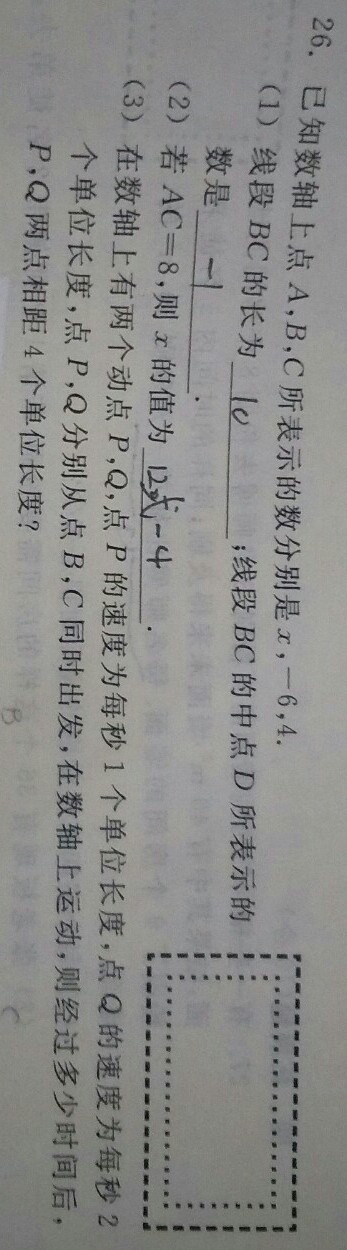 26. 已知数轴上点 A,B,C所表示的数分别是 x,-6,4.
(1) 线段 BC 的长为 10 ;线段 BC 的中点 D 所表示的
数是 -1 .
(2) 若 AC=8,则 x 的值为 12或-4 .
(3) 在数轴上有两个动点 P,Q,点 P 的速度为每秒 1 个单位长度,点 Q 的速度为每秒 2
个单位长度,点 P,Q 分别从点 B,C 同时出发,在数轴上运动,则经过多少时间后,
P,Q 两点相距 4 个单位长度?
B
C